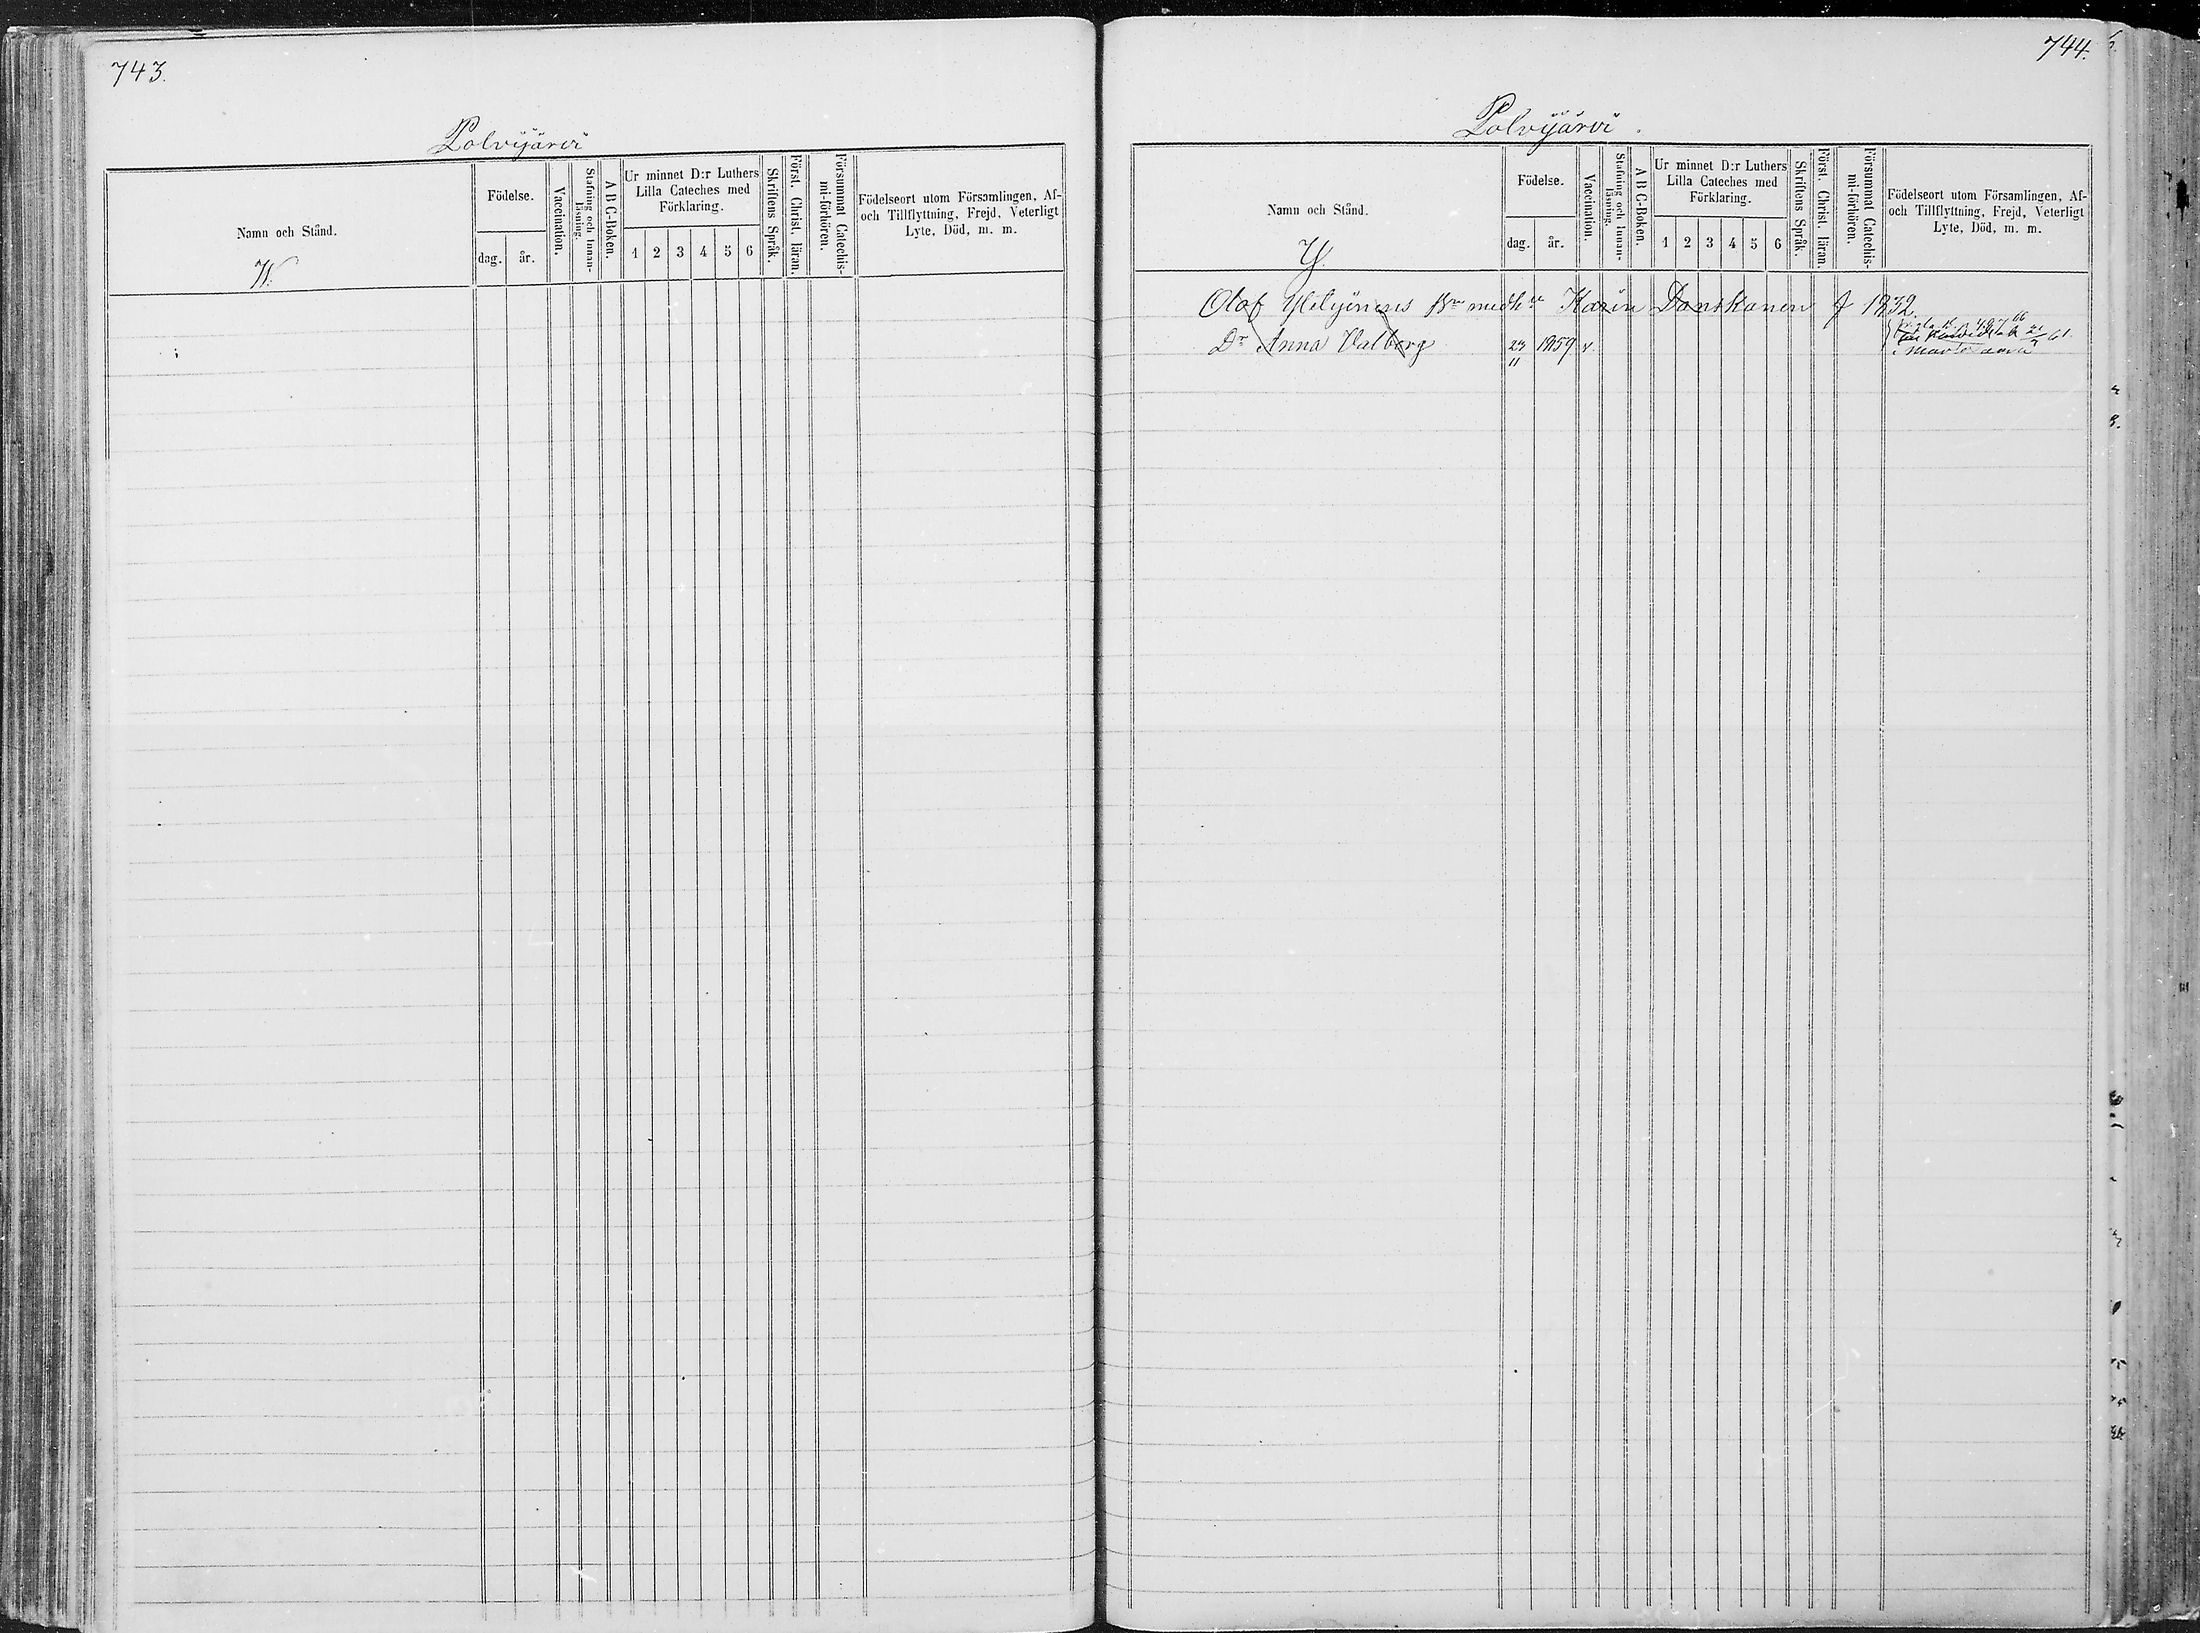 743.
Polvijärvi
Namn och Stånd.
W.
Födelse.
dag.
år.
Vaccination.
Stafning och Innan-
läsning.
A B C-Boken.
Ur minnet D:r Luthers
Lilla Cateches med
Förklaring.
1 2 3 4 5 6
Skriftens Språk.
Först. Christ. läran.
Försummat Catechis-
mi-förhören.
Födelseort utom Församlingen, Af-
och Tillflyttning, Frejd, Veterligt
Lyte, Död, m. m.
744.
Polvijärvi.
Namn och Stånd.
Y.
Födelse.
dag.
år.
Vaccination.
Stafning och Innan-
läsning.
A B C-Boken.
Ur minnet D:r Luthers
Lilla Cateches med
Förklaring.
1 2 3 4 5 6
Skriftens Språk.
Först. Christ. läran.
Försummat Catechis-
mi-förhören.
Födelseort utom Församlingen, Af-
och Tillflyttning, Frejd, Veterligt
Lyte, Död, m. m.
Olof medh Karin Danskanen f 1832.
Dr Anna Valborg 23/11 1859 v.
61.